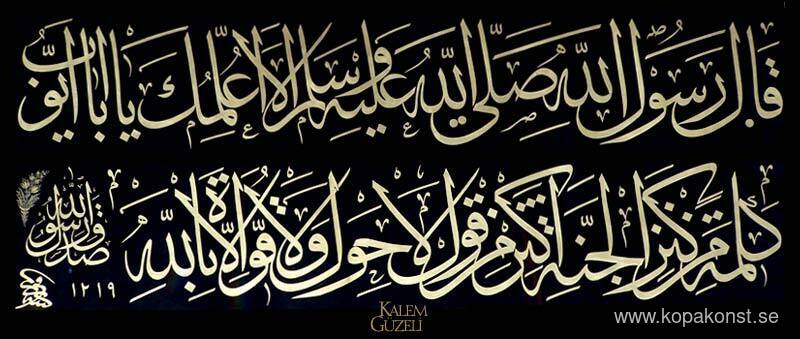 قال رسول الله صلى الله عليه وسلم الا اعلمك يا ابا ايوب
كلمة من كنز الجنة اكثر من قول لا حول ولا قوة الا بالله
صدق رسول الله
١٢١٩
KALEM
GÜZELİ
www.kopakonst.se